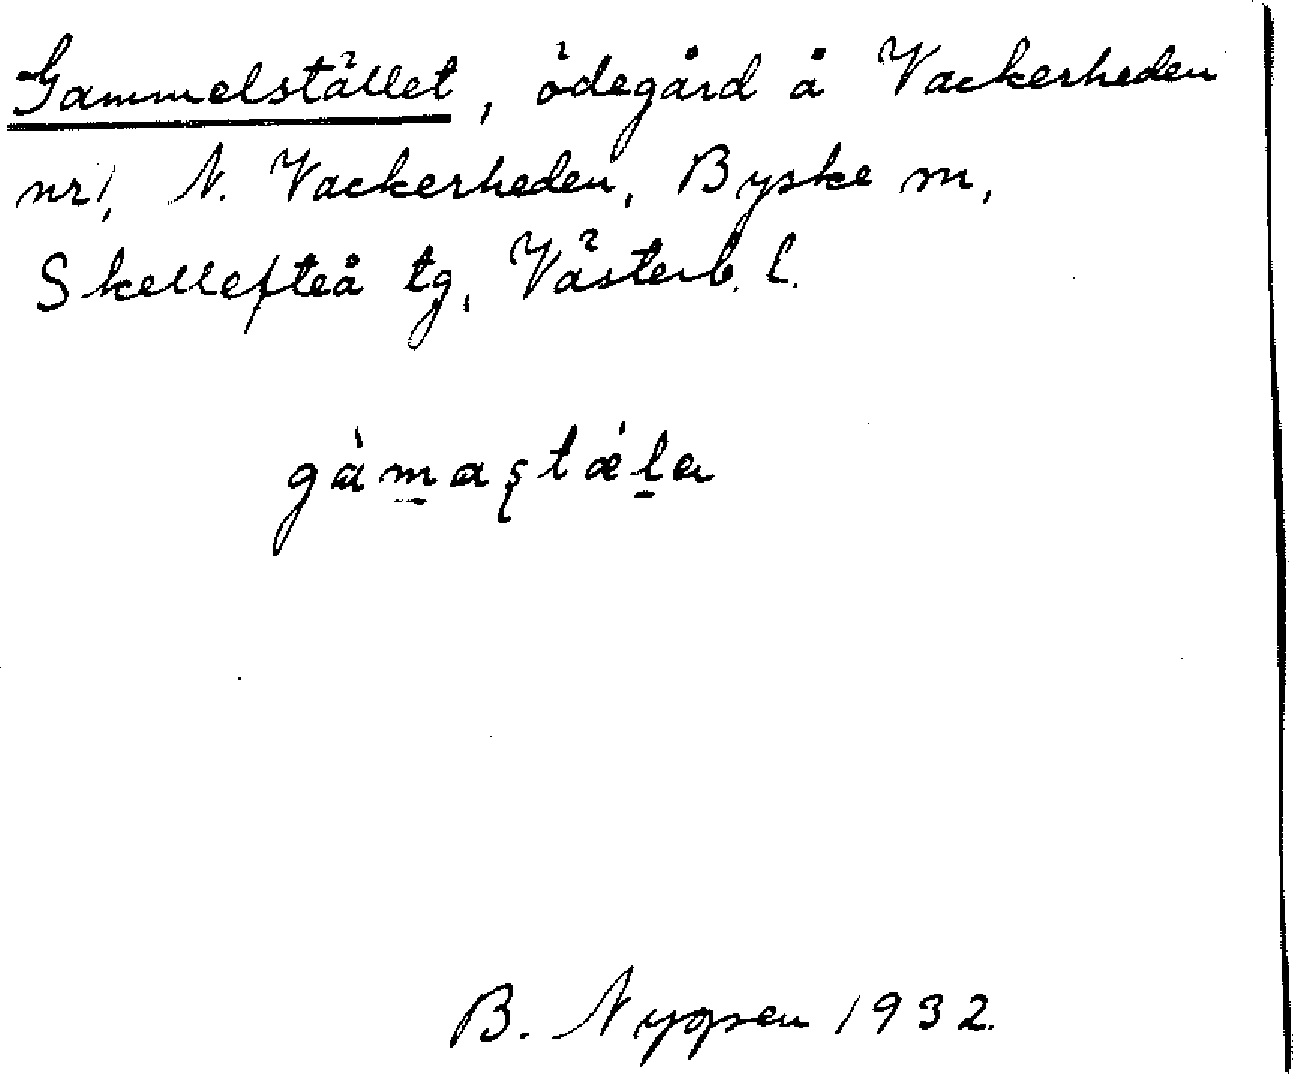 Gammelstället, ödegård å Vackerheden
nr 1, N. Vackerheden, Byske sn,
Skellefteå tg, Västerb. l.
B. 1932.